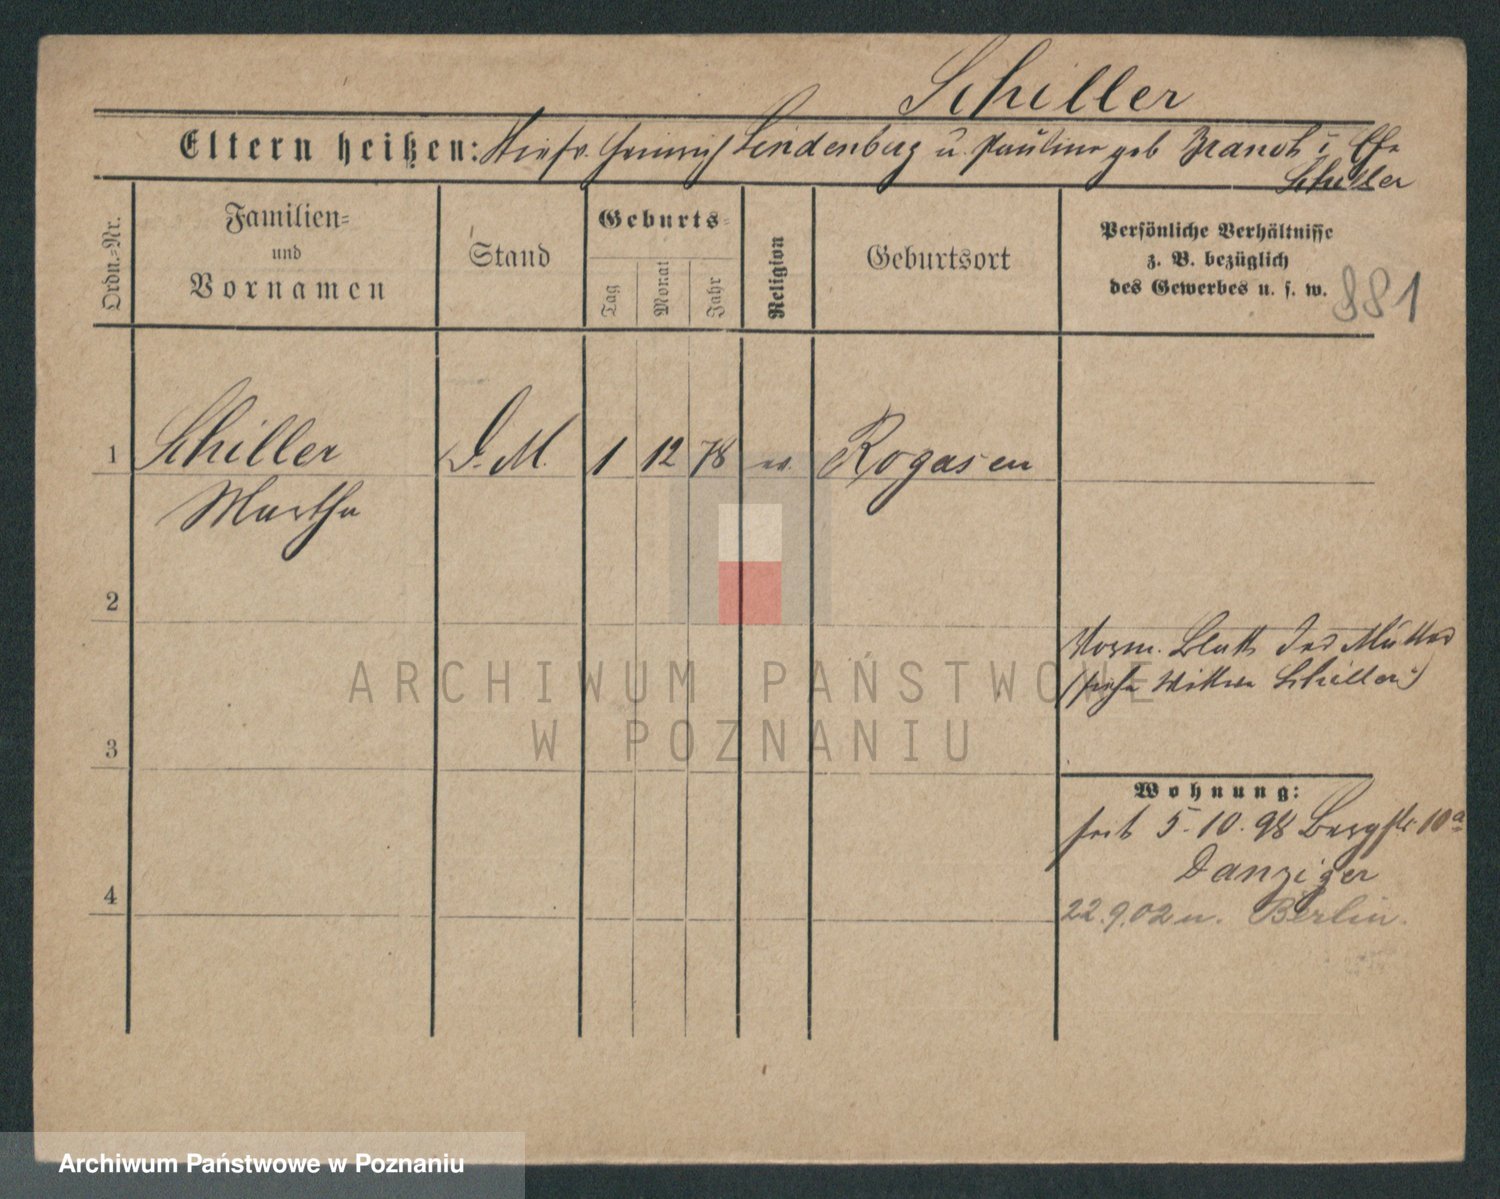 Schiller
Eltern heißen: Heinrich Lindenberg u. Pauline geb Brandt i. Ehe
Schiller
Ordn.-Nr.
Familien-
und
Vornamen
Stand
Geburts-
Tag
Monat
Jahr
Religion
Geburtsort
Persönliche Verhältnisse
z. B. bezüglich
des Gewerbes u. s. w.
881
1 Schiller D. M. 1 12 78 ev. Rogasen
Martha
2
Vorm. Blatt der Mutter
(siehe Wittwe Schiller)
3
Wohnung:
seit 5.10.98 Bergstr. 10a
Danziger
4
22.9.02 n. Berlin.
ARCHIWUM PAŃSTWOWE
W POZNANIU
Archiwum Państwowe w Poznaniu